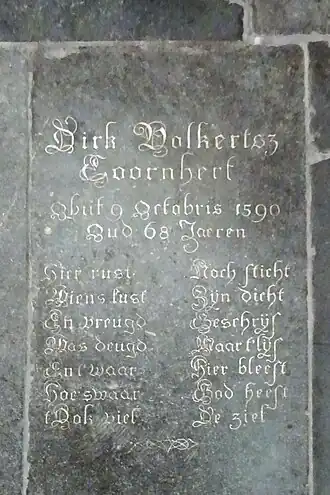 Dirk Volkertsz
Coornhert
Obiit 9 Octobris 1590
Oud 68 Jaeren
Hier rust
Wiens lust
En vreugd
Was deugd
En t waar
Hoe swaar
t Ook viel
Noch sticht
Zyn dicht
Geschrijf
Maar t lijf
Hier bleeft
God heeft
De ziel